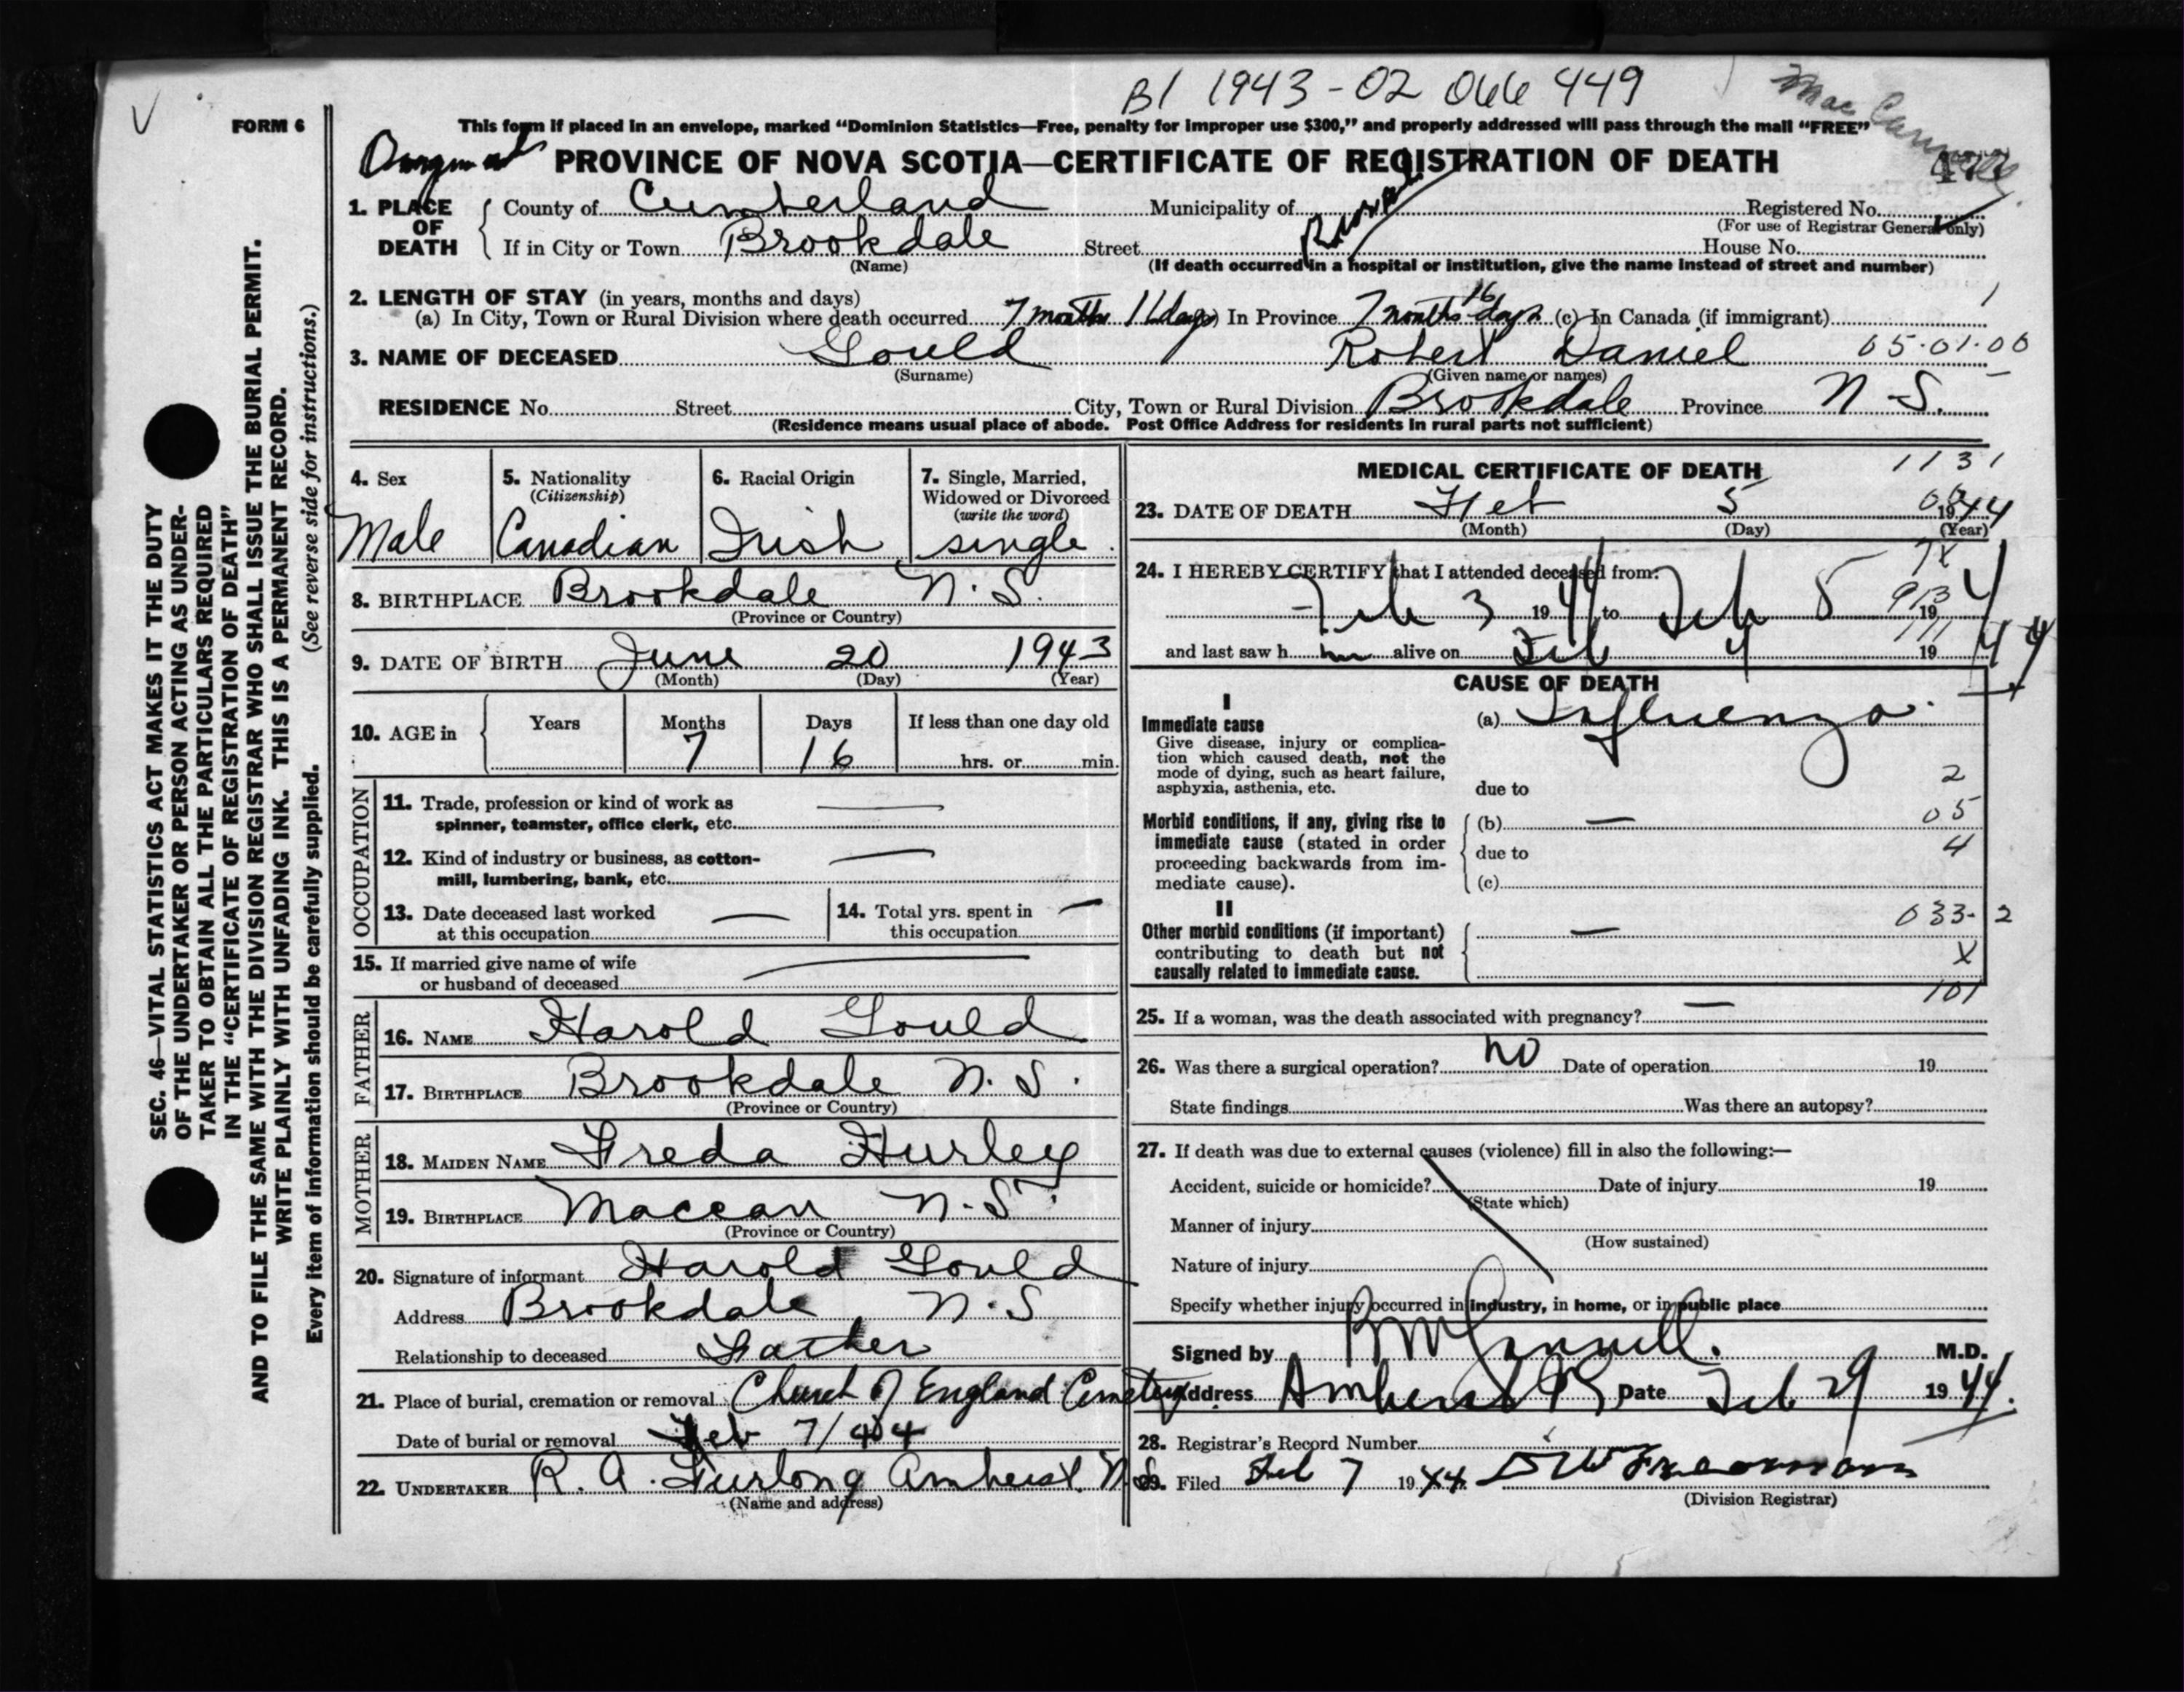 B1 1943-02 066 449
FORM 6
This form if placed in an envelope, marked “Dominion Statistics—Free, penalty for improper use $300,” and properly addressed will pass through the mail “FREE”
PROVINCE OF NOVA SCOTIA—CERTIFICATE OF REGISTRATION OF DEATH
1. PLACE OF DEATH
County of Cumberland Municipality of Rural Registered No.
(For use of Registrar General only)
If in City or Town Brookdale Street House No.
(Name) (If death occurred in a hospital or institution, give the name instead of street and number)
2. LENGTH OF STAY (in years, months and days) 1
(a) In City, Town or Rural Division where death occurred 7 months 16 days In Province 7 months 16 days (c) In Canada (if immigrant)
3. NAME OF DECEASED Gould Robert Daniel 05-01-00
(Surname) (Given name or names)
RESIDENCE No. Street City, Town or Rural Division Brookdale Province N S.
(Residence means usual place of abode. Post Office Address for residents in rural parts not sufficient)
4. Sex
Male
5. Nationality
(Citizenship)
Canadian
6. Racial Origin
Irish
7. Single, Married,
Widowed or Divorced
(write the word)
single
8. BIRTHPLACE Brookdale N. S.
(Province or Country)
9. DATE OF BIRTH June 20 1943
(Month) (Day) (Year)
10. AGE in Years Months Days If less than one day old
7 16 hrs. or min.
OCCUPATION
11. Trade, profession or kind of work as
spinner, teamster, office clerk, etc. —
12. Kind of industry or business, as cotton-
mill, lumbering, bank, etc. —
13. Date deceased last worked
at this occupation —
14. Total yrs. spent in
this occupation —
15. If married give name of wife
or husband of deceased —
FATHER
16. NAME Harold Gould
17. BIRTHPLACE Brookdale N. S.
(Province or Country)
MOTHER
18. MAIDEN NAME Freda Hurley
19. BIRTHPLACE Maccan N. S.
(Province or Country)
20. Signature of informant Harold Gould
Address Brookdale N. S
Relationship to deceased Father
21. Place of burial, cremation or removal Church of England Cemetery
Date of burial or removal Feb 7/44
22. UNDERTAKER R. A. Furlong Amherst N.S.
(Name and address)
MEDICAL CERTIFICATE OF DEATH 1131
23. DATE OF DEATH Feb 5 1944
(Month) (Day) (Year)
24. I HEREBY CERTIFY that I attended deceased from:
Feb 3 1944 to Feb 5 1944
and last saw him alive on Feb 4 1944
CAUSE OF DEATH
I
Immediate cause
Give disease, injury or complica-
tion which caused death, not the
mode of dying, such as heart failure,
asphyxia, asthenia, etc.
(a) Influenza
2
due to
Morbid conditions, if any, giving rise to
immediate cause (stated in order
proceeding backwards from im-
mediate cause).
(b) — 05
due to 4
(c)
II
Other morbid conditions (if important)
contributing to death but not
causally related to immediate cause.
— 033-2
X
101
25. If a woman, was the death associated with pregnancy? —
26. Was there a surgical operation? no Date of operation 19
State findings Was there an autopsy?
27. If death was due to external causes (violence) fill in also the following:—
Accident, suicide or homicide? Date of injury 19
(State which)
Manner of injury
(How sustained)
Nature of injury
Specify whether injury occurred in industry, in home, or in public place
Signed by M.D.
Address Amherst Date Feb 29 1944.
28. Registrar's Record Number
29. Filed Feb 7 1944
(Division Registrar)
SEC. 46—VITAL STATISTICS ACT MAKES IT THE DUTY
OF THE UNDERTAKER OR PERSON ACTING AS UNDER-
TAKER TO OBTAIN ALL THE PARTICULARS REQUIRED
IN THE “CERTIFICATE OF REGISTRATION OF DEATH”
AND TO FILE THE SAME WITH THE DIVISION REGISTRAR WHO SHALL ISSUE THE BURIAL PERMIT.
WRITE PLAINLY WITH UNFADING INK. THIS IS A PERMANENT RECORD.
Every item of information should be carefully supplied. (See reverse side for instructions.)